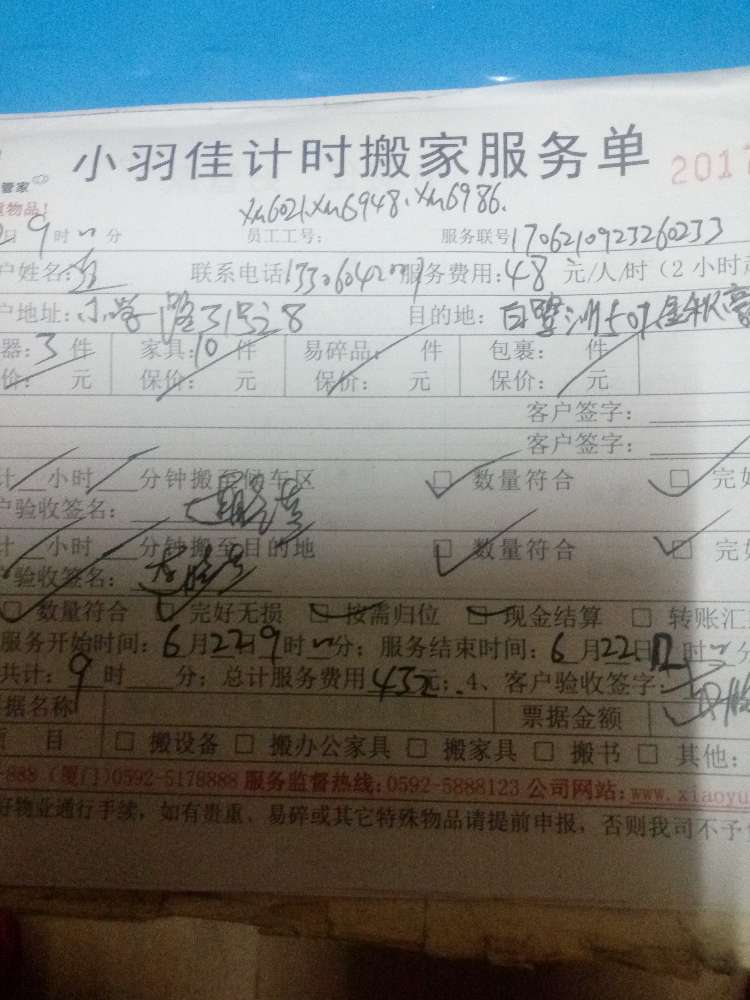 小羽佳计时搬家服务单 2017
管家
物品!
xm6021.xm6948.xm6986.
日9时 分 员工工号: 服务联号1706210923260233
户姓名: 联系电话 服务费用:48元/人/时(2小时
户地址:小学路31号之8 目的地:白鹭洲507金秋豪
器:3件 家具:10件 易碎品: 件 包裹: 件
价: 元 保价: 元 保价: 元 保价: 元
客户签字:
客户签字:
计 小时 分钟搬至候车区 数量符合 完好
户验收签名:
计 小时 分钟搬至目的地 数量符合 完好
户验收签名:
数量符合 完好无损 按需归位 现金结算 转账汇
服务开始时间:6月22 9时 分;服务结束时间:6月22日12时 分
共计:9时 分;总计服务费用432元;.4、客户验收签字:
据名称 票据金额
项 目 搬设备 搬办公家具 搬家具 搬书 其他:
-888 (厦门)0592-5178888 服务监督热线:0592-5888123 公司网站:www.xiaoyu
好物业通行手续,如有贵重、易碎或其它特殊物品请提前申报,否则我司不予